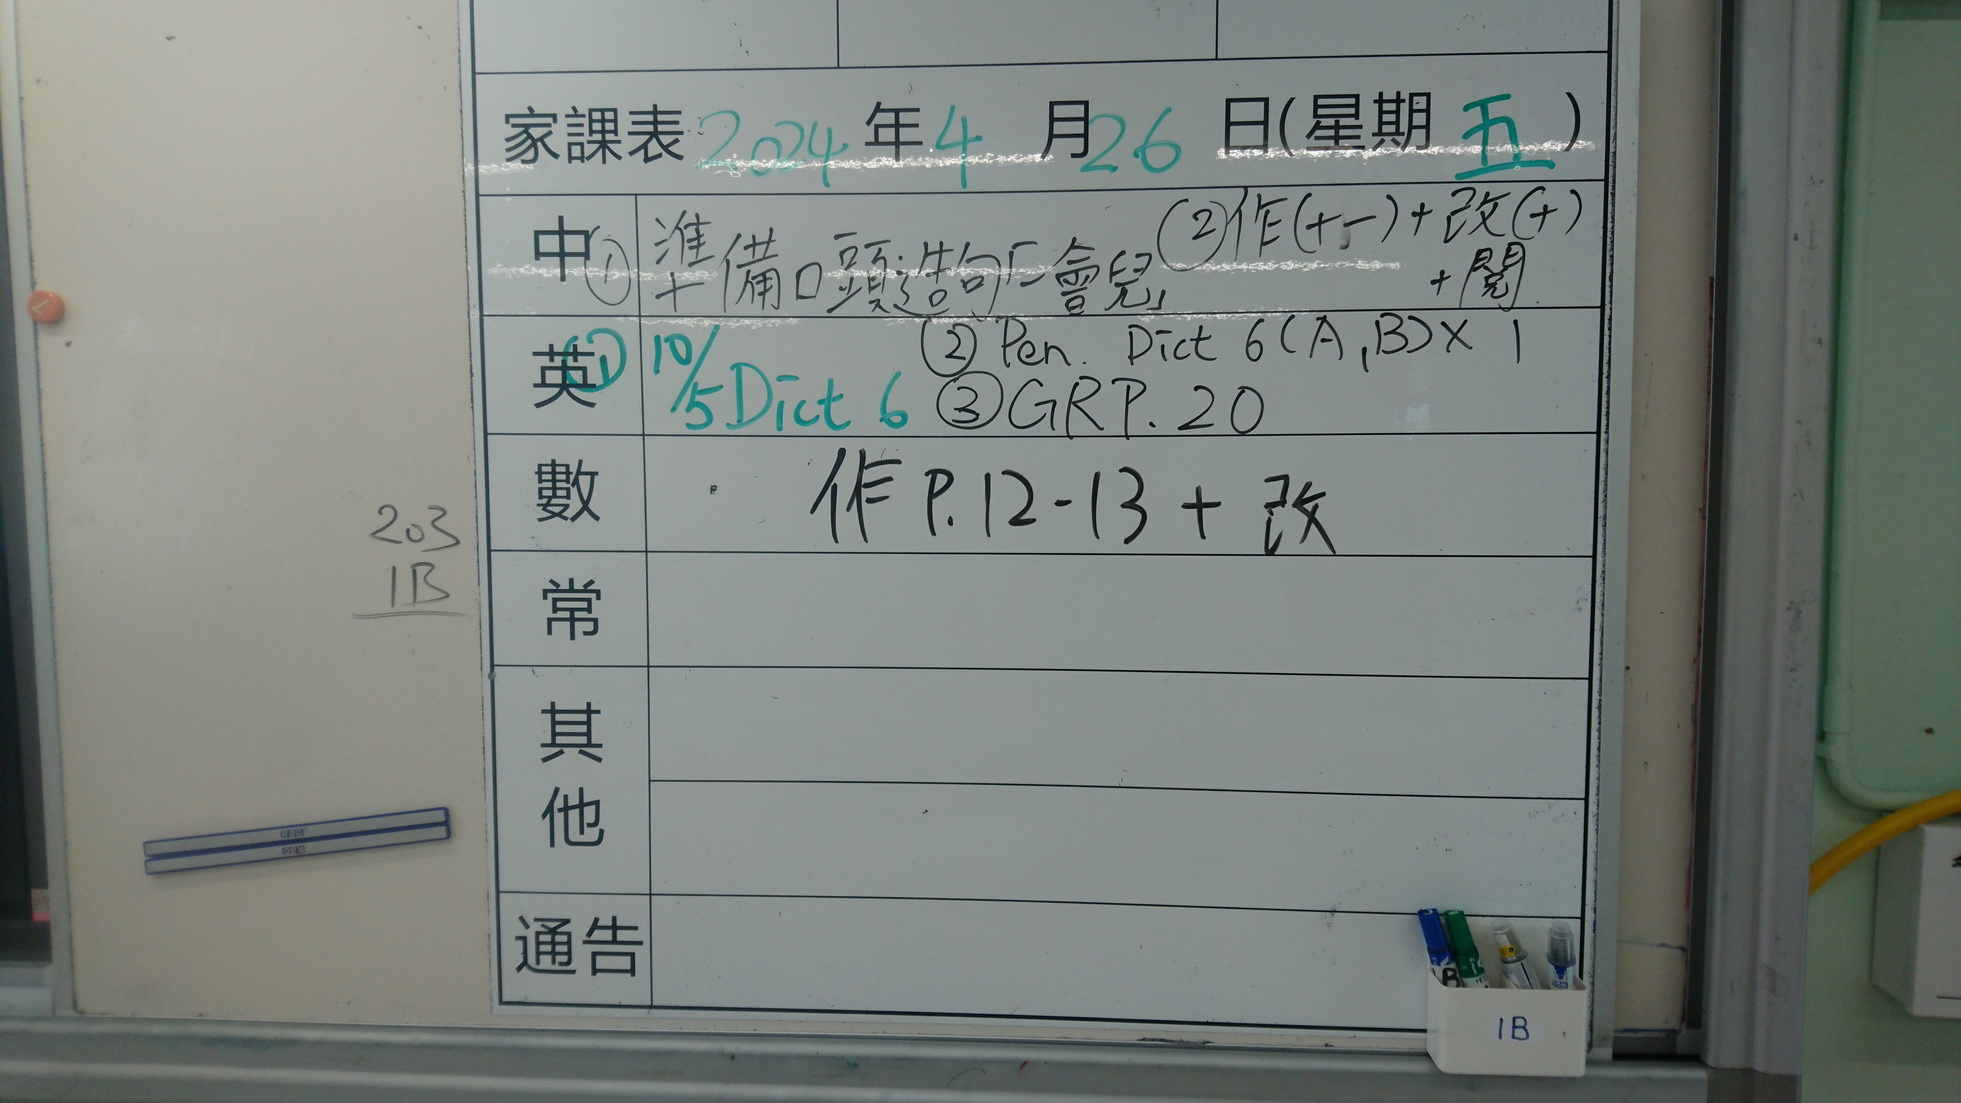 家課表 2024 年 4 月 26 日(星期 五)
中 ① 準備口頭造句「一會兒」 ②作(十一)+改(十)
+閱
英 ① 10/5 Dict 6 ② Pen. Dict 6 (A,B)×1
③ GR P.20
數 作 P.12-13 + 改
常
其他
通告
203
1B
1B